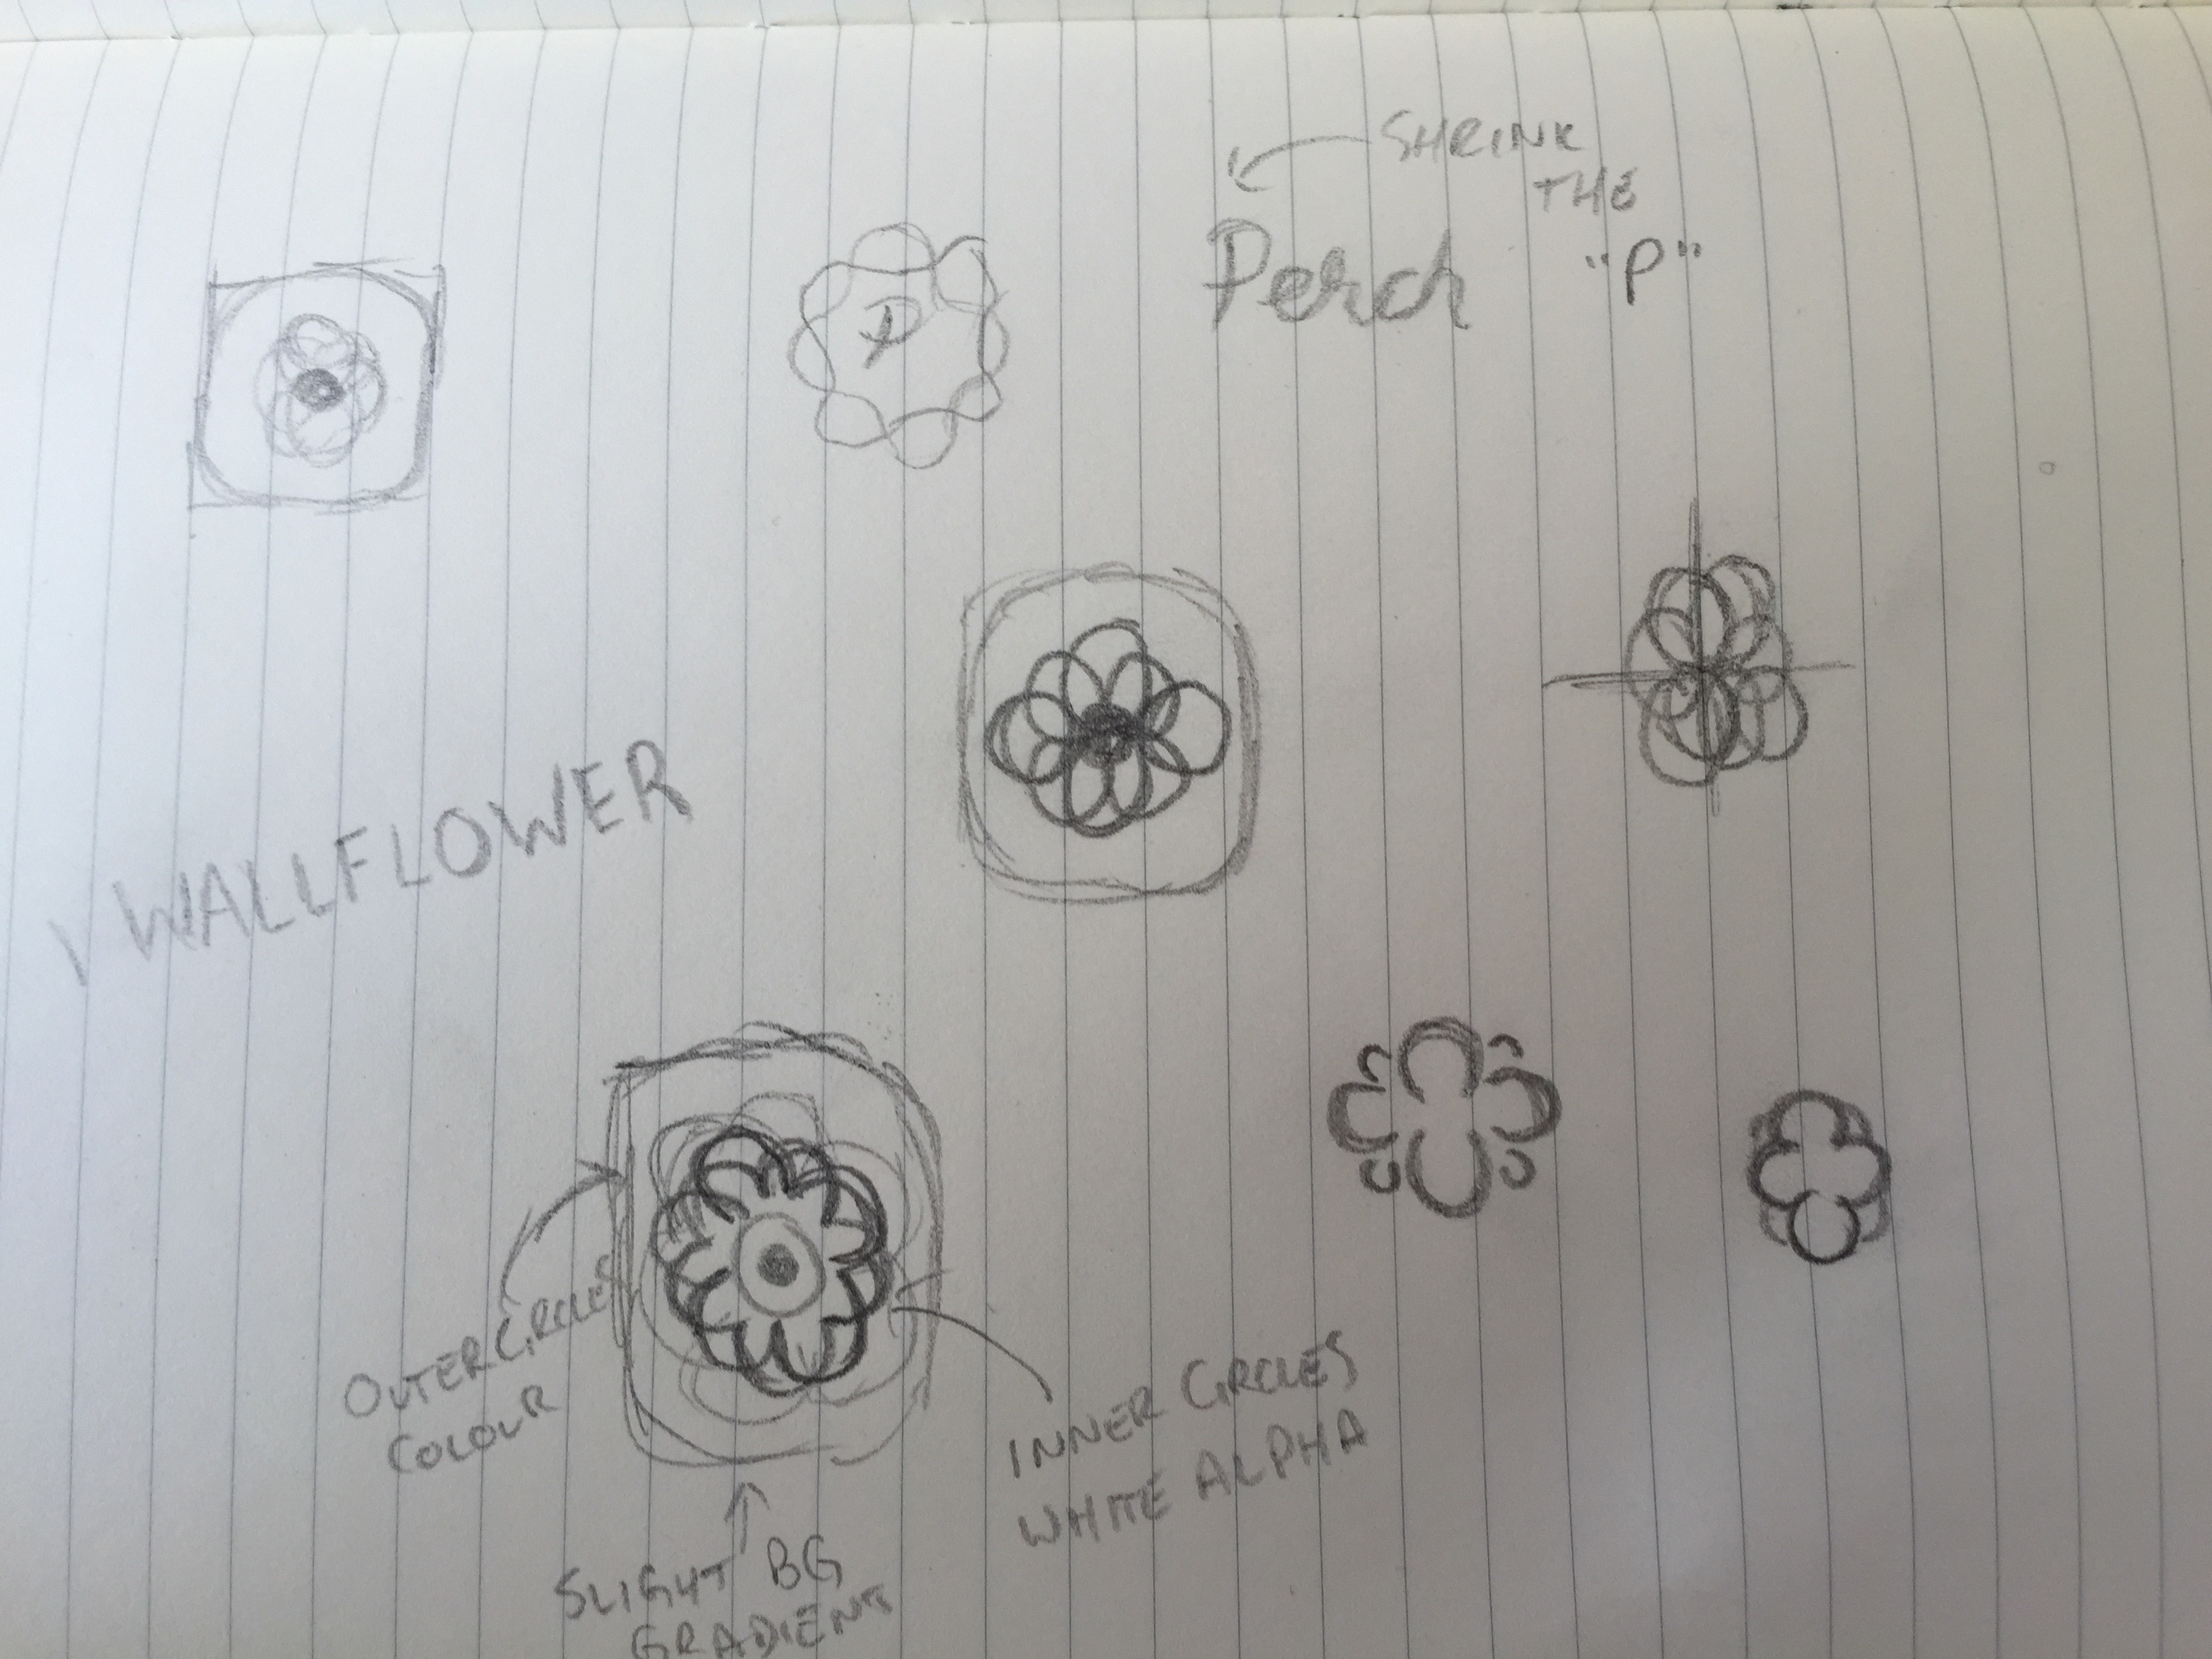 SHRINK
THE
"P"
Perch
P
WALLFLOWER
OUTER CIRCLES
COLOUR
INNER CIRCLES
WHITE ALPHA
SLIGHT BG
GRADIENT